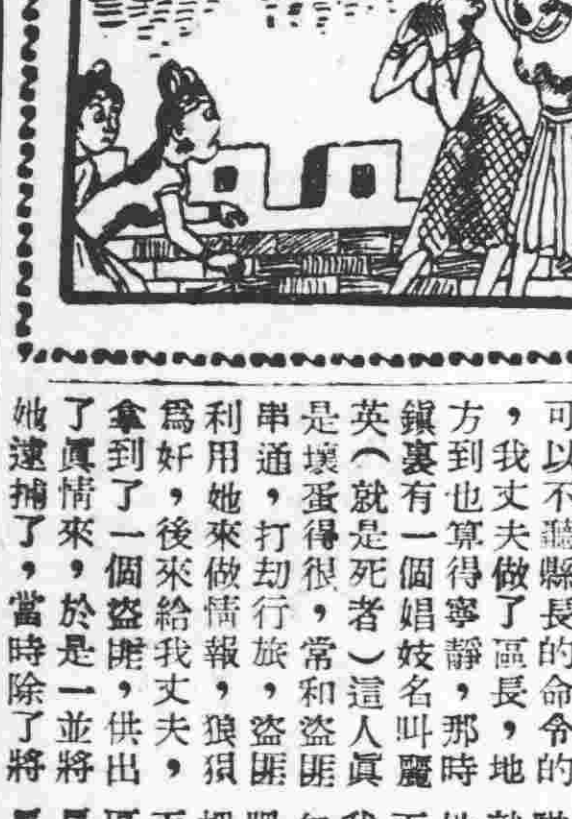 可以不聽縣長的命令的
，我丈夫做了區長，地
方到也算得寧靜，那時
鎮裏有一個娼妓名叫麗
英（就是死者）這人眞
是壞蛋得很，常和盜匪
串通，打劫行旅，盜匪
利用她來做情報，狼狽
爲奸，後來給我丈夫，
拿到了一個盜匪，供出
了眞情來，於是一並將
她逮捕了，當時除了將